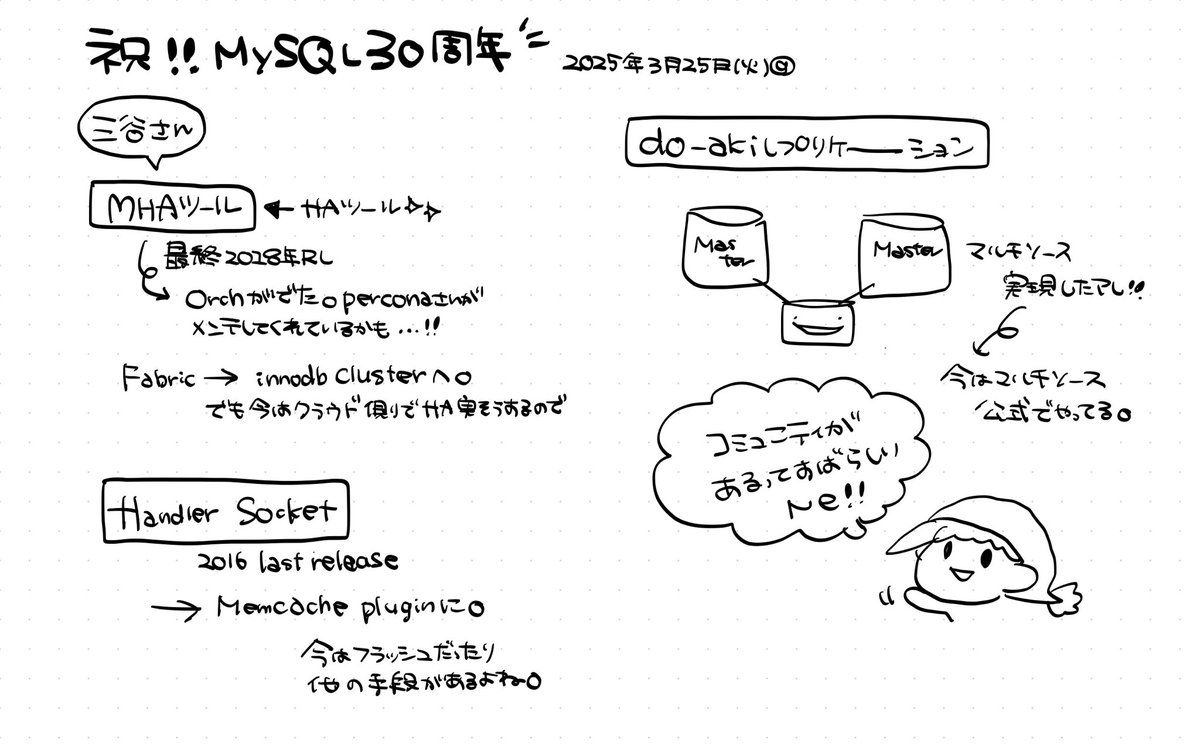 祝!! MySQL30周年
2025年3月25日(火)@
三谷さん
MHAツール ← HAツール
最終2018年RL
Orchがでた。perconaさんが
メンテしてくれているかも…!!
Fabric → innodb clusterへ。
でも今はクラウド側でHA実そうあるので
Handler Socket
2016 last release
→ Memcache pluginに。
今はフラッシュだったり
他の手段があるよね。
do-akiレプリケーション
Master
Master
マルチソース
実現したアレ!!
今はマルチソース
公式でやってる。
コミュニティが
あるってすばらしい
Ne!!